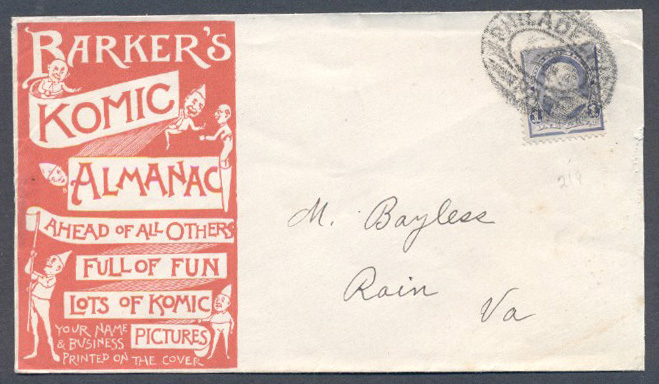 BARKER'S
KOMIC
ALMANAC
AHEAD OF ALL OTHERS
FULL OF FUN
LOTS OF KOMIC
PICTURES
YOUR NAME
& BUSINESS
PRINTED ON THE COVER
PHILADEL
1 1
M. Bayless
Rain
Va